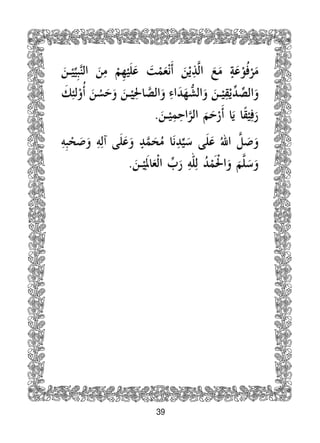 مَرْفُوْعَةٍ مَعَ الَّذِيْنَ أَنْعَمْتَ عَلَيْهِمْ مِنَ النَّبِيِّيْنَ
وَالصِّدِّيْقِيْنَ وَالشُّهَدَاءِ وَالصَّالِحِيْنَ وَحَسُنَ أُوْلَئِكَ
رَفِيْقًا يَا أَرْحَمَ الرَّاحِمِيْنَ.
وَصَلَّ اللهُ عَلَى سَيِّدِنَا مُحَمَّدٍ وَعَلَى آلِهِ وَصَحْبِهِ
وَسَلَّمَ وَالْحَمْدُ لِلَّهِ رَبِّ الْعَالَمَيْنَ.
39